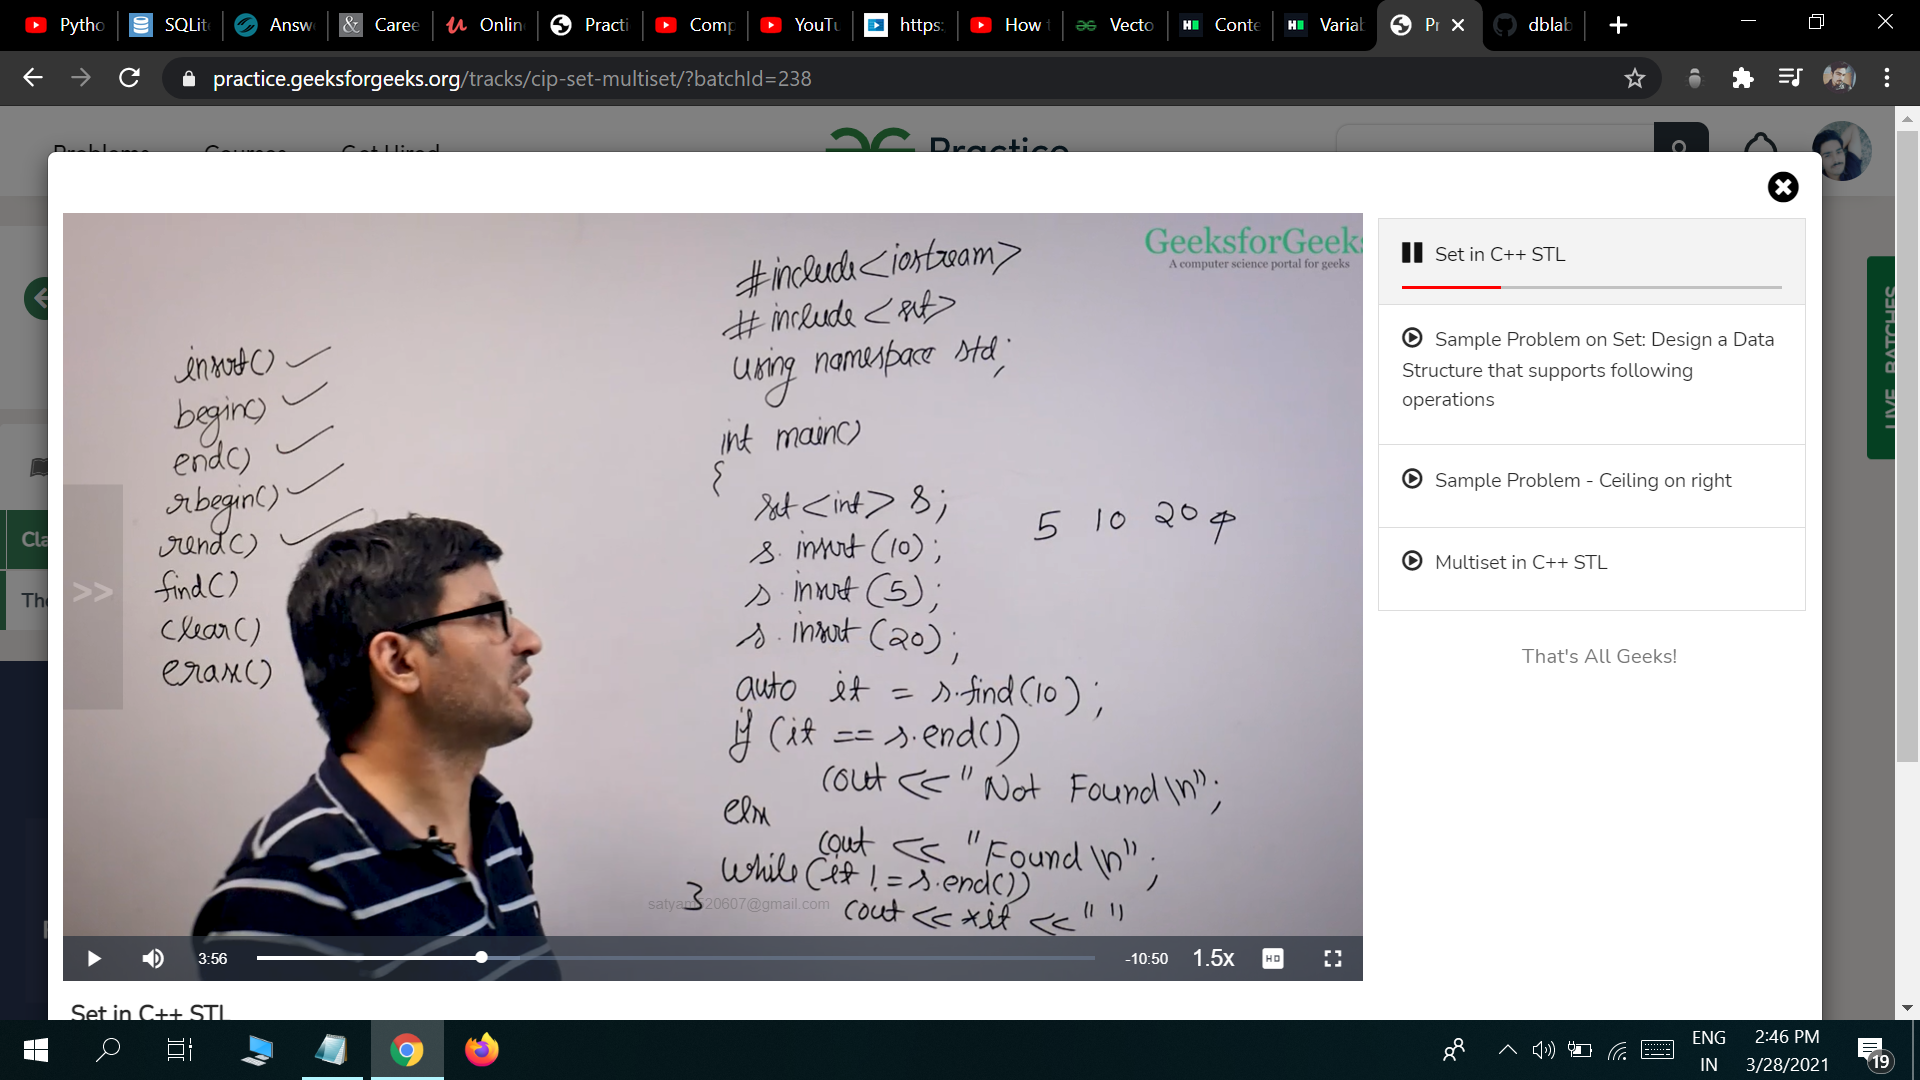 Pytho
SQLit
Answ
Caree
Onlin
Practi
Comp
YouTu
https:
How t
Vecto
Conte
Variab
Pr
dblab
practice.geeksforgeeks.org/tracks/cip-set-multiset/?batchId=238
Problems Courses Get Hired
Practice
GeeksforGeeks
A computer science portal for geeks
insert()
begin()
end()
rbegin()
rend()
find()
clear()
erase()
#include<iostream>
#include <set>
using namespace std;
int main()
{
set<int> s;
s.insert(10);
s.insert(5);
s.insert(20);
5 10 20
auto it = s.find(10);
if (it == s.end())
cout << "Not Found\n";
else
cout << "Found\n";
while(it != s.end())
cout << *it << " "
}
>>
3:56
-10:50
1.5x
HD
Set in C++ STL
Set in C++ STL
Sample Problem on Set: Design a Data
Structure that supports following
operations
Sample Problem - Ceiling on right
Multiset in C++ STL
That's All Geeks!
LIVE BATCHES
Cla
The
ENG
IN
2:46 PM
3/28/2021
19